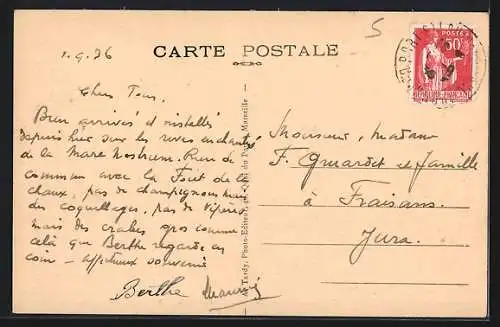 1.9.36
CARTE POSTALE
5
POSTES
50c
Chers Tous.
Bien arrivés et installés
depuis hier sur les rives enchantées
de la Mare Nostrum. Rien de
commun avec la Forêt de la
chaux, pas de champignons mais
des coquillages, pas de vipères
mais des crabes gros comme
celà que Berthe regarde en
coin - affectueux souvenir
Berthe Maurice
Tardy, Photo-Editeur, Quai du Port, Marseille
Monsieur, Madame
F. et famille
à Fraisans.
Jura.